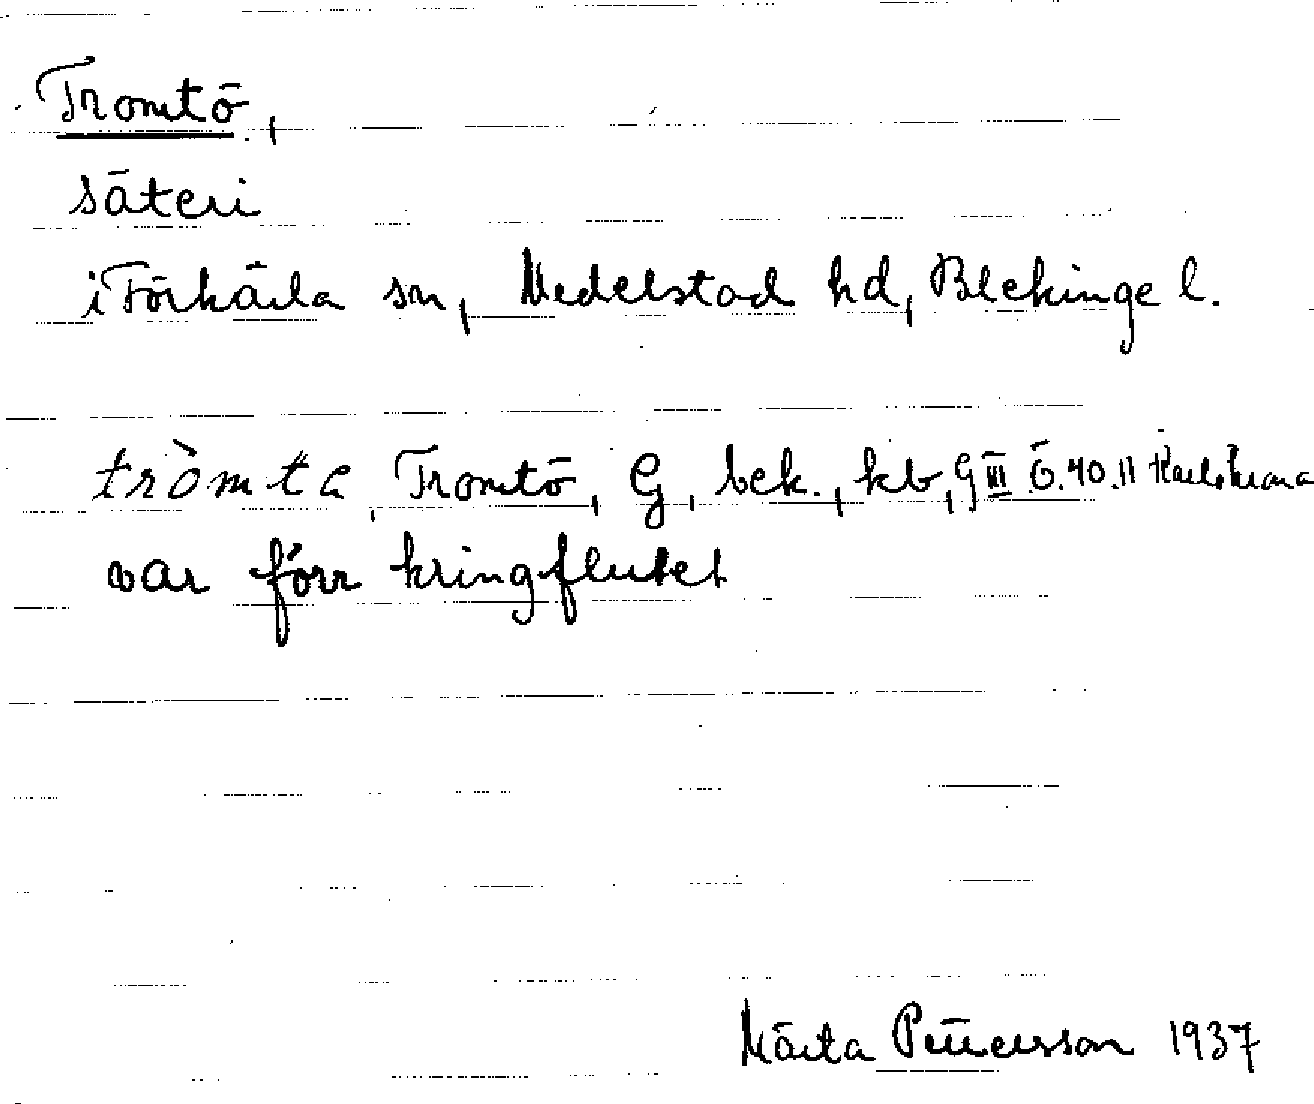 Tromtö,
säteri
i Förkärla sn, Medelstad hd, Blekinge l.
tròmta Tromtö, G, bek., kb, G III Ö.40.11 Karlskrona
var förr kringflutet
Märta Pettersson 1937